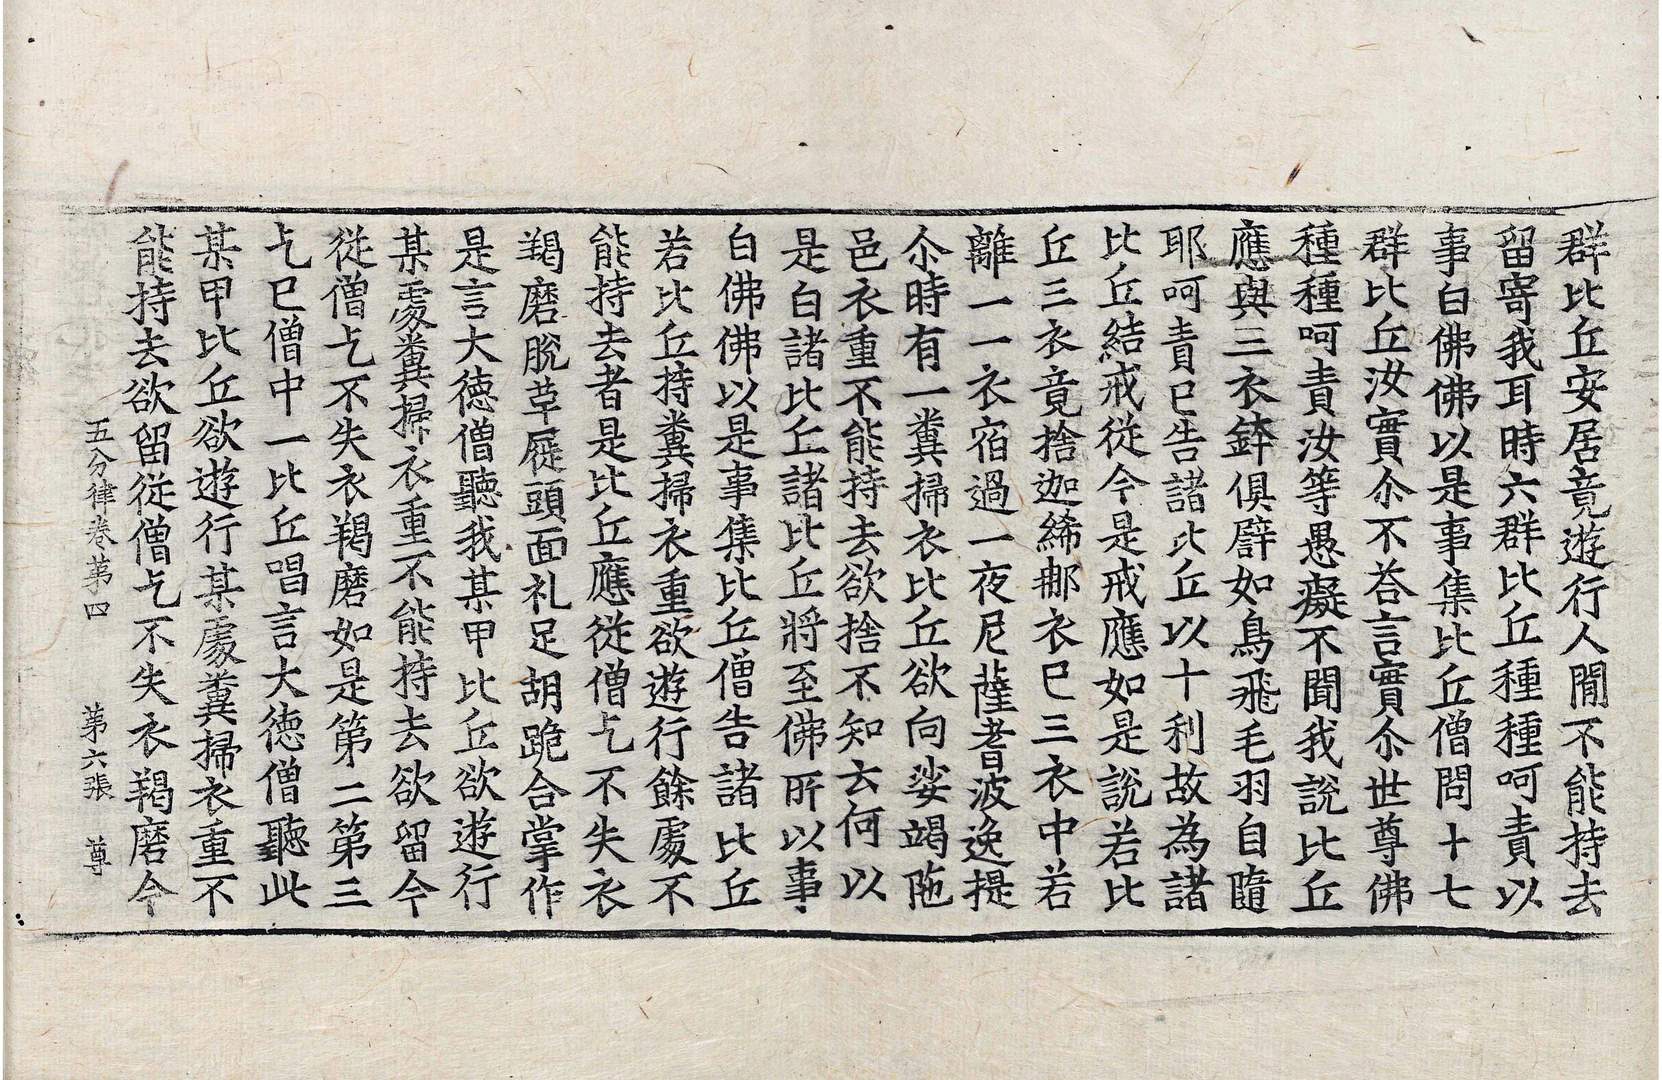 群比丘安居竟遊行人閒不能持去
留寄我耳時六群比丘種種呵責以
事白佛佛以是事集比丘僧問十七
群比丘汝實尒不荅言實尒世尊佛
種種呵責汝等愚癡不聞我說比丘
應與三衣鉢俱譬如鳥飛毛羽自隨
耶呵責已告諸比丘以十利故為諸
比丘結戒從今是戒應如是說若比
丘三衣竟捨迦絺那衣已三衣中若
離一一衣宿過一夜尼薩耆波逸提
尒時有一糞掃衣比丘欲向娑竭陁
邑衣重不能持去欲捨不知云何以
是白諸比丘諸比丘將至佛所以事
白佛佛以是事集比丘僧告諸比丘
若比丘持糞掃衣重欲遊行餘處不
能持去者是比丘應從僧乞不失衣
羯磨脫革屣頭面礼足胡跪合掌作
是言大德僧聽我某甲比丘欲遊行
某處糞掃衣重不能持去欲留今
從僧乞不失衣羯磨如是第二第三
乞已僧中一比丘唱言大德僧聽此
某甲比丘欲遊行某處糞掃衣重不
能持去欲留從僧乞不失衣羯磨今
五分律卷第四 第六張 尊